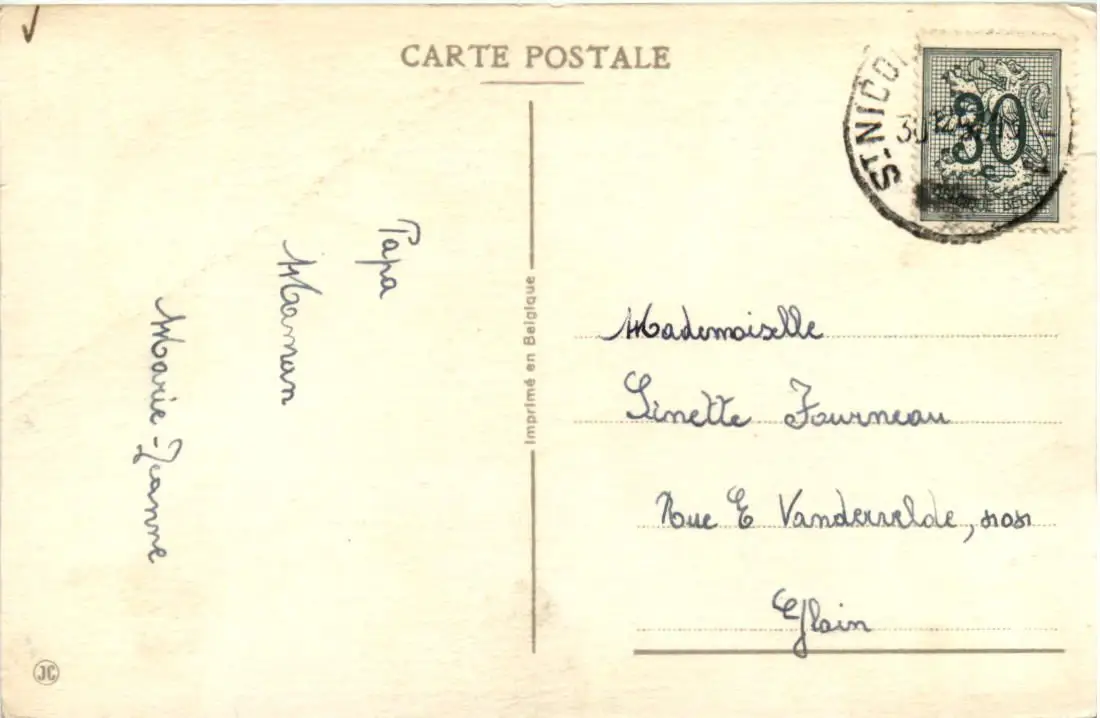 CARTE POSTALE
ST-NICOL
30
BELGIQUE BELGIE
Papa
Maman
Marie-Jeanne
Imprimé en Belgique
Mademoiselle
Linette Fourneau
Rue E Vandervelde,
Glain
JC